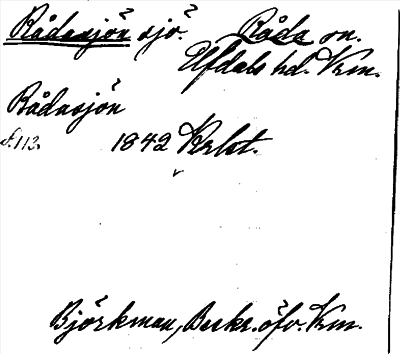 Rådasjön sjö. Råda sn.
Elfdals hd. Vrm.
Rådasjön
s. 113. 1842 Krbt.
Björkman, Beskr. öfv. Vrm.